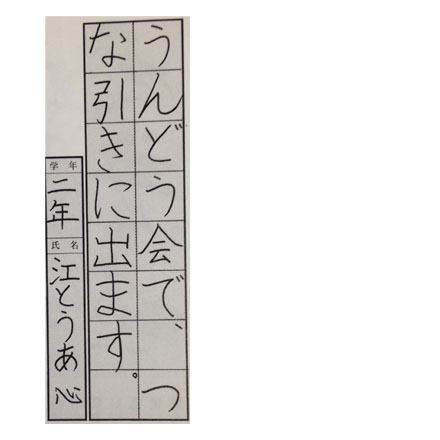 うんどう会で、つ
な引きに出ます。
学年
二年
氏名
江とうあ心